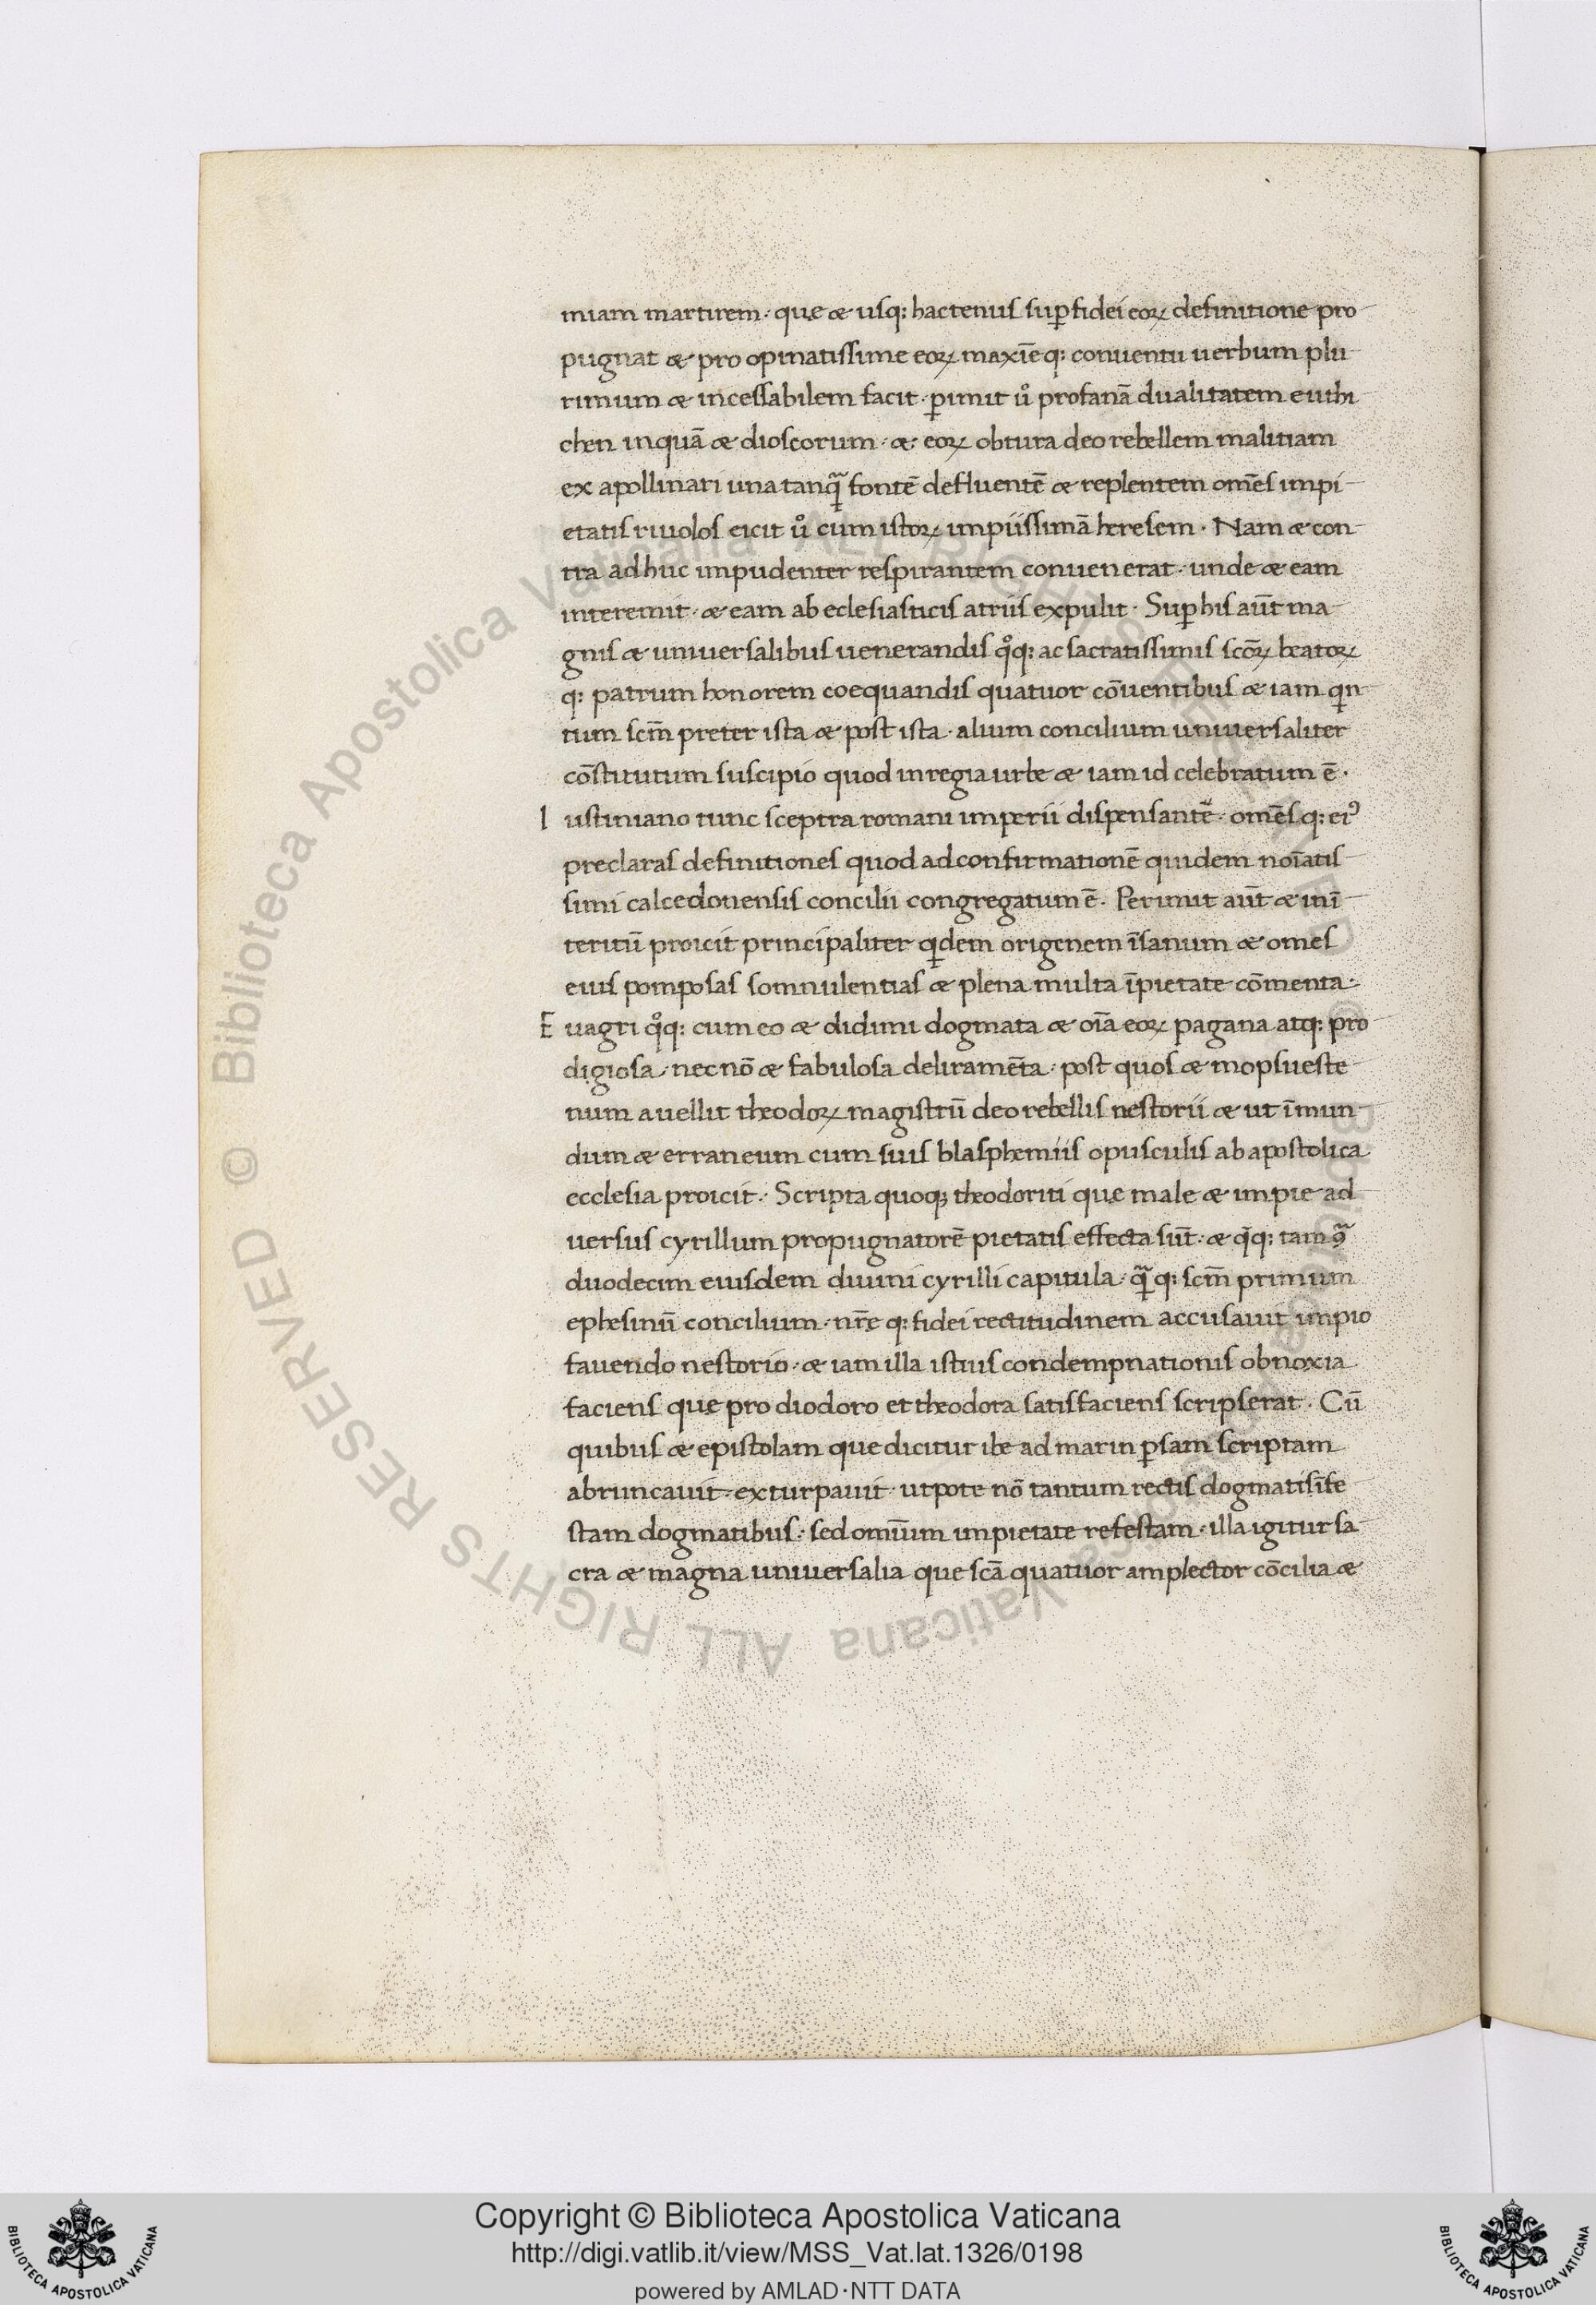 miam martirem · quę & usq; hactenus sup̱ fidei eoꝝ definitione pro
pugnat & pro opinatissime eoꝝ maxīeq; conuentu uerbum plu
rimum & incessabilem facit · ꝑimit uͦ profanā dualitatem euthi
chen inquā & dioscorum · & eoꝝ obtura deo rebellem malitiam
ex apollinari una tanqᷓ fontē defluentē & replentem omēs impi
etatis riuolos eicit uͦ cum istoꝝ impiissimā heresem · Nam & con
tra adhuc impudenter respirantem conuenerat · unde & eam
interemit · & eam ab eclesiasticis atriis expulit · Suꝑ his aūt ma
gnis & uniuersalibus uenerandis qͦq; ac sacratissimis scōꝝ beatoꝝ
q; patrum honorem coequandis quatuor cōuentibus & iam qin
tum scm̄ preter ista & post ista · alium concilium uniuersaliter
cōstitutum suscipio quod in regia urbe & iam id celebratum ē ·
I ustiniano tunc sceptra romani imperii dispensantē · omēs q; eiꝰ
preclaras definitiones quod ad confirmationē quidem noīatis
simi calcedonensis concilii congregatum ē · Perimit aūt & inī
teritū proicit principaliter qͥdem origenem īsanum & omes
eius pomposas somnulentias & plena multa īpietate cōmenta ·
E uagri qͦq; cum eo & didimi dogmata & oīa eoꝝ pagana atq; pro
digiosa · nec nō & fabulosa deliramēta · post quos & mopsueste
num auellit theodoꝝ magistrū deo rebellis nestorii & ut īmun
dum & erraneum cum suis blasphemiis opusculis ab apostolica
ecclesia proicit · Scripta quoq; theodoriti quę male & impie ad
uersus cyrillum propugnatorē pietatis effecta sūt · & q̄q; tam qᷓ
duodecim eiusdem diuini cyrilli capitula · qᷓ q; scm̄ primum
ephesinū concilium · nr̄ę q; fidei rectitudinem accusauit impio
fauendo nestorio · & iam illa istius condempnationis obnoxia
faciens quę pro diodoro et theodora satisfaciens scripserat · Cū
quibus & epistolam que dicitur ibe ad marin ꝑsam scriptam
abruncauit · exturpauit · utpote nō tantum rectis dogmatis īfe
stam dogmatibus · sed omīum impietate refestam · illa igitur sa
cra & magna uniuersalia que scā quatuor amplector cōcilia &
Copyright © Biblioteca Apostolica Vaticana
http://digi.vatlib.it/view/MSS_Vat.lat.1326/0198
powered by AMLAD·NTT DATA
BIBLIOTECA APOSTOLICA VATICANA
BIBLIOTECA APOSTOLICA VATICANA
© Biblioteca Apostolica Vaticana ALL RIGHTS RESERVED © Biblioteca Apostolica Vaticana ALL RIGHTS RESERVED